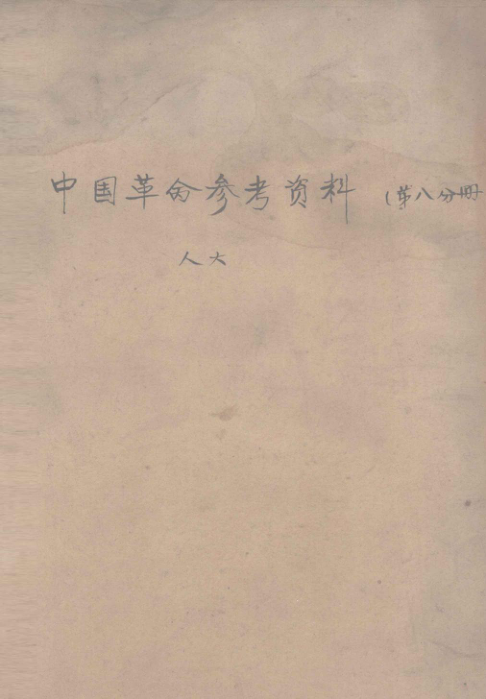 中国革命参考资料（第八分册
人大